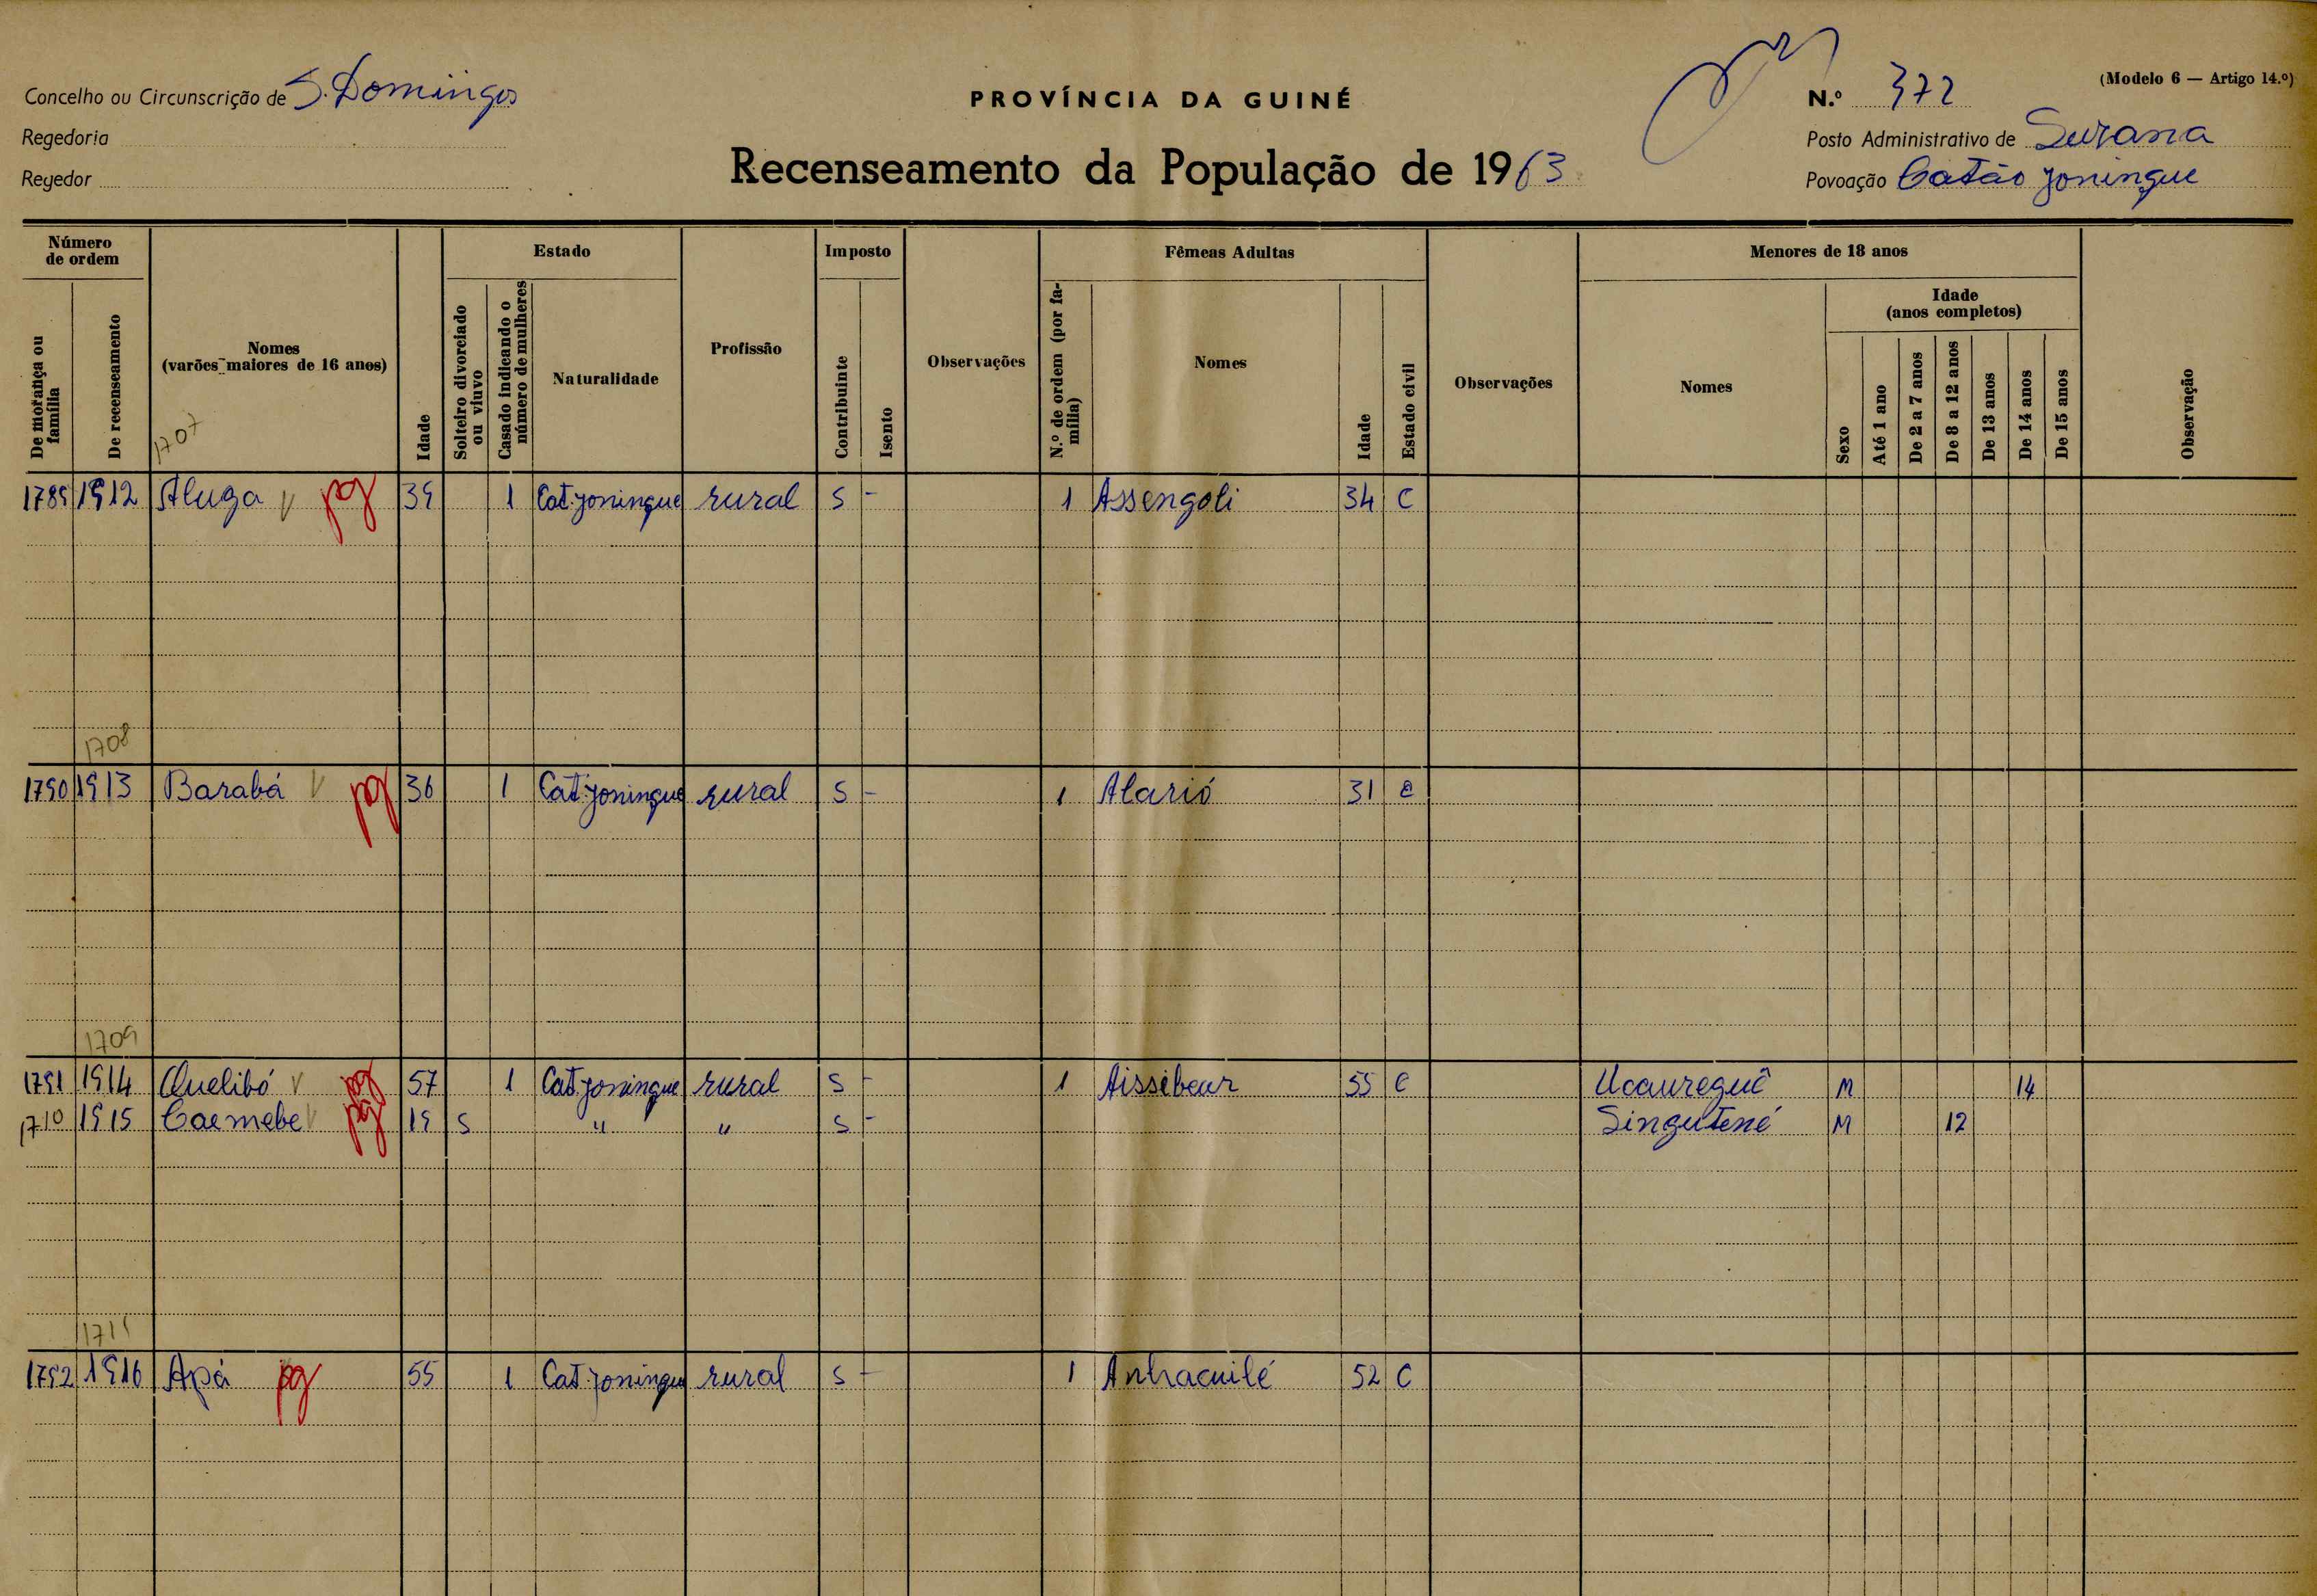 Concelho ou Circunscrição de S. Domingos
Regedoria
Regedor
PROVÍNCIA DA GUINÉ
Recenseamento da População de 1963
(Modelo 6 — Artigo 14.º)
N.º 372
Posto Administrativo de Suzana
Povoação Catão Joningue
Número de ordem
De morança ou família
De recenseamento
Nomes
(varões maiores de 16 anos)
Idade
Estado
Solteiro divorciado ou viuvo
Casado indicando o número de mulheres
Naturalidade
Profissão
Imposto
Contribuinte
Isento
Observações
Fêmeas Adultas
N.º de ordem (por família)
Nomes
Idade
Estado civil
Observações
Menores de 18 anos
Nomes
Idade
(anos completos)
Sexo
Até 1 ano
De 2 a 7 anos
De 8 a 12 anos
De 13 anos
De 14 anos
De 15 anos
Observação
1707
1789 1912 Aluga V pg 39 1 Cat. Joningue rural S - 1 Assengoli 34 C
1708
1790 1913 Barabá V pg 36 1 Cat. Joningue rural S - 1 Alarió 31 C
1709
1791 1914 Quelibó V pg 57 1 Cat. Joningue rural S - 1 Aissibeur 55 C Ucaureguê M 14
1710 1915 Caemebe V pg 19 S " " S - Singutené M 12
1711
1792 1916 Apá pg 55 1 Cat. Joningue rural S - 1 Anhacuilé 52 C